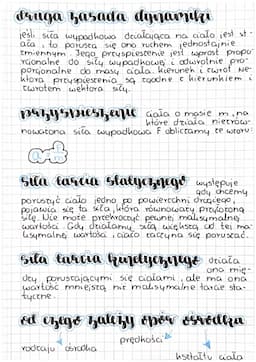 druga zasada dynamiki
jeśli siła wypadkowa działająca na ciało jest st-
ała, to porusza się ono ruchem jednostajnie
zmiennym. Jego przyspieszenie jest wprost propo-
rcjonalne do siły wypadkowej i odwrotnie pro-
porcjonalne do masy ciała. kierunek i zwrot we-
ktora przyspieszenia są zgodne z kierunkiem i
zwrotem wektora siły.
przyspieszenie ciała o masie m, na
które działa niezrów-
noważona siła wypadkowa F obliczamy ze wzoru:
siła tarcia statycznego występuje
gdy chcemy
poruszyć ciało jedno po powierzchni drugiego,
pojawia się ta siła, która równoważy przyłożoną
siłę. Nie może przekroczyć pewnej maksymalnej
wartości. Gdy działamy siłą większą od tej ma-
ksymalnej wartości, ciało zaczyna się poruszać.
siła tarcia kinetycznego działa
ona mię-
dzy poruszającymi się ciałami, ale ma ona
wartość mniejszą niż maksymalne tarcie sta-
tyczne.
od czego zależy opór ośrodka
prędkości
rodzaju ośrodka
kształtu ciała